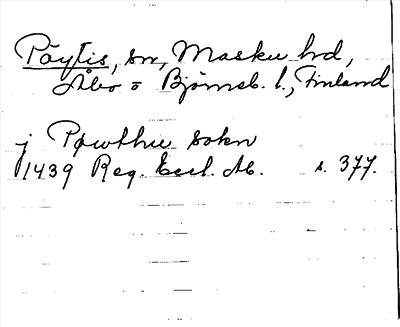 Pöytis, sn, Masku hd,
Åbo o Björneb. l., Finland
j Pøwthu sokn
1439 Reg. Eccl. Ab. s. 377.